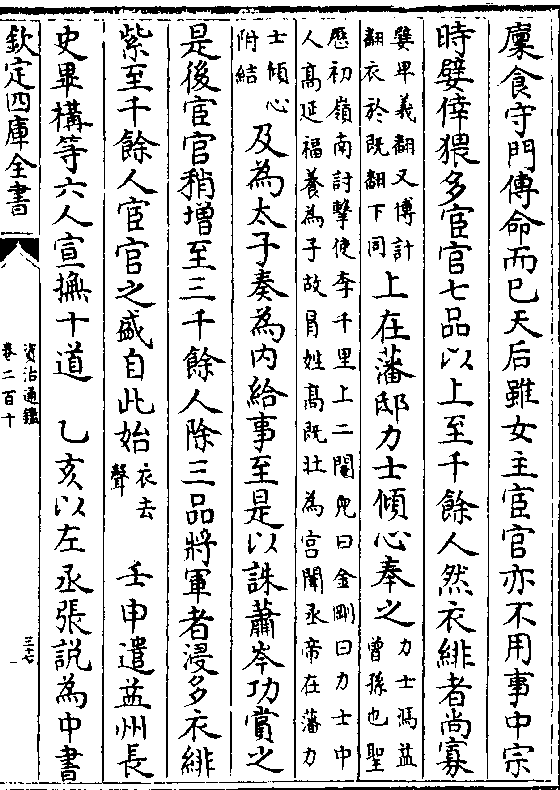 廩食守門傳命而已天后雖女主宦官亦不用事中宗
時嬖倖猥多宦官七品以上至千餘人然衣緋者尚寡
嬖卑義翻又博計
翻衣於既翻下同
上在藩邸力士傾心奉之
力士馮盎
曾孫也聖
厯初嶺南討擊使李千里上二閹兒曰金剛曰力士中
人髙延福養為子故冒姓髙既壯為宮闈丞帝在藩力
士傾心
附結
及為太子奏為内給事至是以誅蕭岑功賞之
是後宦官稍增至三千餘人除三品將軍者浸多衣緋
紫至千餘人宦官之盛自此始
衣去
聲
壬申遣益州長
史畢構等六人宣撫十道 乙亥以左丞張說為中書
欽定四庫全書
資治通鑑
卷二百十
三十七